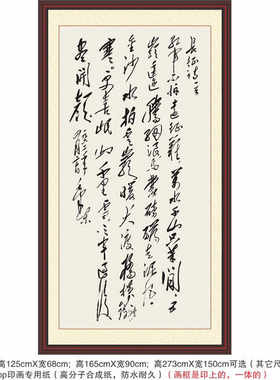 长征诗一首
红军不怕远征难万水千山只等闲五
岭逶迤腾细浪乌蒙磅礴走泥丸
金沙水拍云崖暖大渡桥横铁索
寒更喜岷山千里雪三军过后
尽开颜
毛泽东
高125cmX宽68cm; 高165cmX宽90cm; 高273cmX宽150cm可选（其它尺
pp印画专用纸（高分子合成纸，防水耐久）（画框是印上的，一体的）